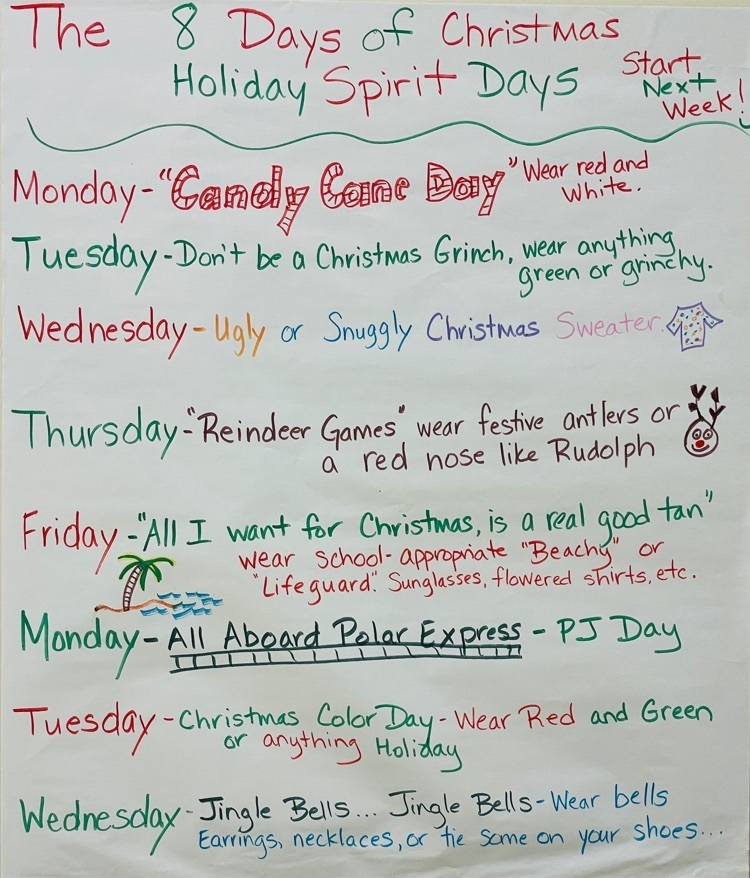 The 8 Days of Christmas
Holiday Spirit Days
Start
Next
Week!
Monday - "Candy Cane Day" Wear red and
white.
Tuesday - Don't be a Christmas Grinch, wear anything
green or grinchy.
Wednesday - Ugly or Snuggly Christmas Sweater.
Thursday - "Reindeer Games" wear festive antlers or
a red nose like Rudolph
Friday - "All I want for Christmas, is a real good tan"
wear school-appropriate "Beachy" or
"Lifeguard". Sunglasses, flowered shirts, etc.
Monday - All Aboard Polar Express - PJ Day
Tuesday - Christmas Color Day - Wear Red and Green
or anything Holiday
Wednesday - Jingle Bells... Jingle Bells - Wear bells
Earrings, necklaces, or tie some on your shoes...